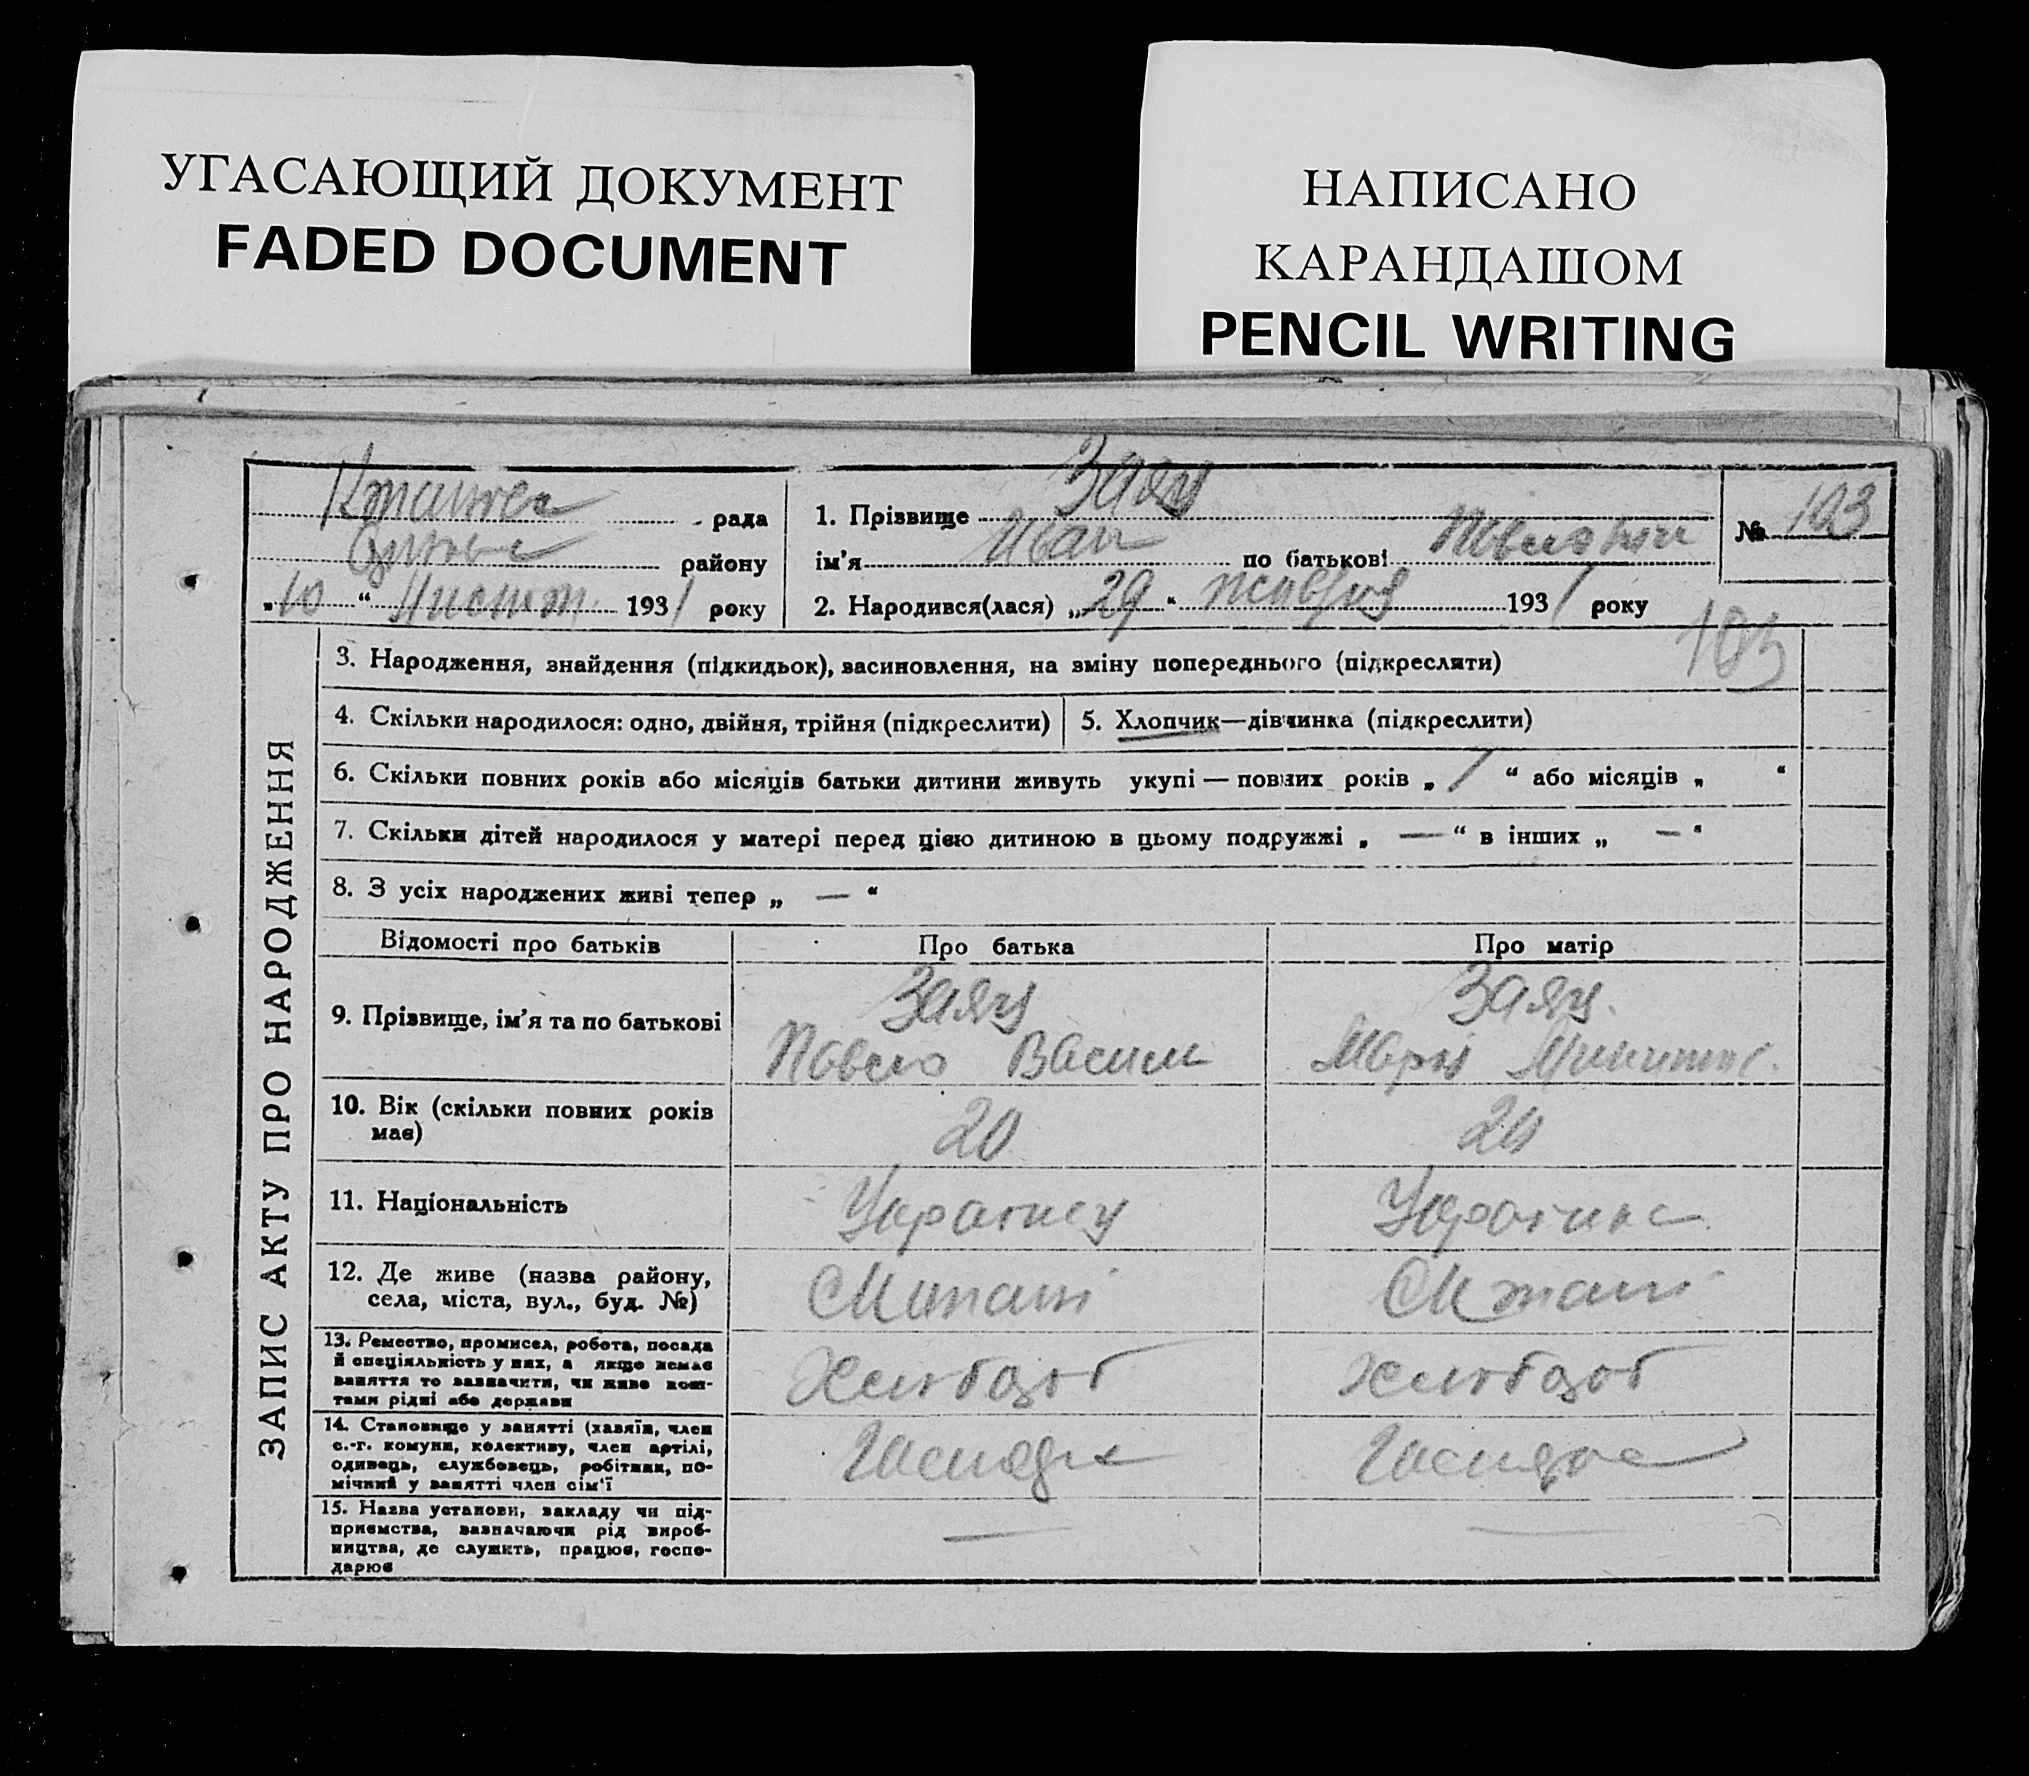 УГАСАЮЩИЙ ДОКУМЕНТ
FADED DOCUMENT
НАПИСАНО
КАРАНДАШОМ
PENCIL WRITING
рада
району
„10“ Лист. 1931 року
1. Прізвище Заяц
ім'я Иван по батькові
2. Народився(лася) „29“ жовтня 1931 року
№ 103
103
ЗАПИС АКТУ ПРО НАРОДЖЕННЯ
3. Народження, знайдення (підкидьок), васиновлення, на зміну попереднього (підкреслити)
4. Скільки народилося: одно, двійня, трійня (підкреслити)
5. Хлопчик—дівчинка (підкреслити)
6. Скільки повних років або місяців батьки дитини живуть укупі — повних років „ 1 “ або місяців „ “
7. Скільки дітей народилося у матері перед цією дитиною в цьому подружжі „ — “ в інших „ — “
8. З усіх народжених живі тепер „ — “
Відомості про батьків
Про батька
Про матір
9. Прізвище, ім'я та по батькові
Заяц
Павло Васил
Заяц.
Марія
10. Вік (скільки повних років
має)
20
20
11. Національність
Украінец
Украінка
12. Де живе (назва району,
села, міста, вул., буд. №)
13. Ремество, промисел, робота, посада
й спеціяльність у них, а якщо немає
заняття то зазначити, чи живе кош-
тами рідні або держави
Хлібороб
Хлібороб
14. Становище у занятті (хазяїн, член
с.-г. комуни, колективу, член артілі,
одинець, службовець, робітник, по-
мічний у занятті член сім'ї
15. Назва установи, закладу чи під-
приємства, зазначаючи рід вироб-
ництва, де служить, працює, госпо-
дарює
—
—